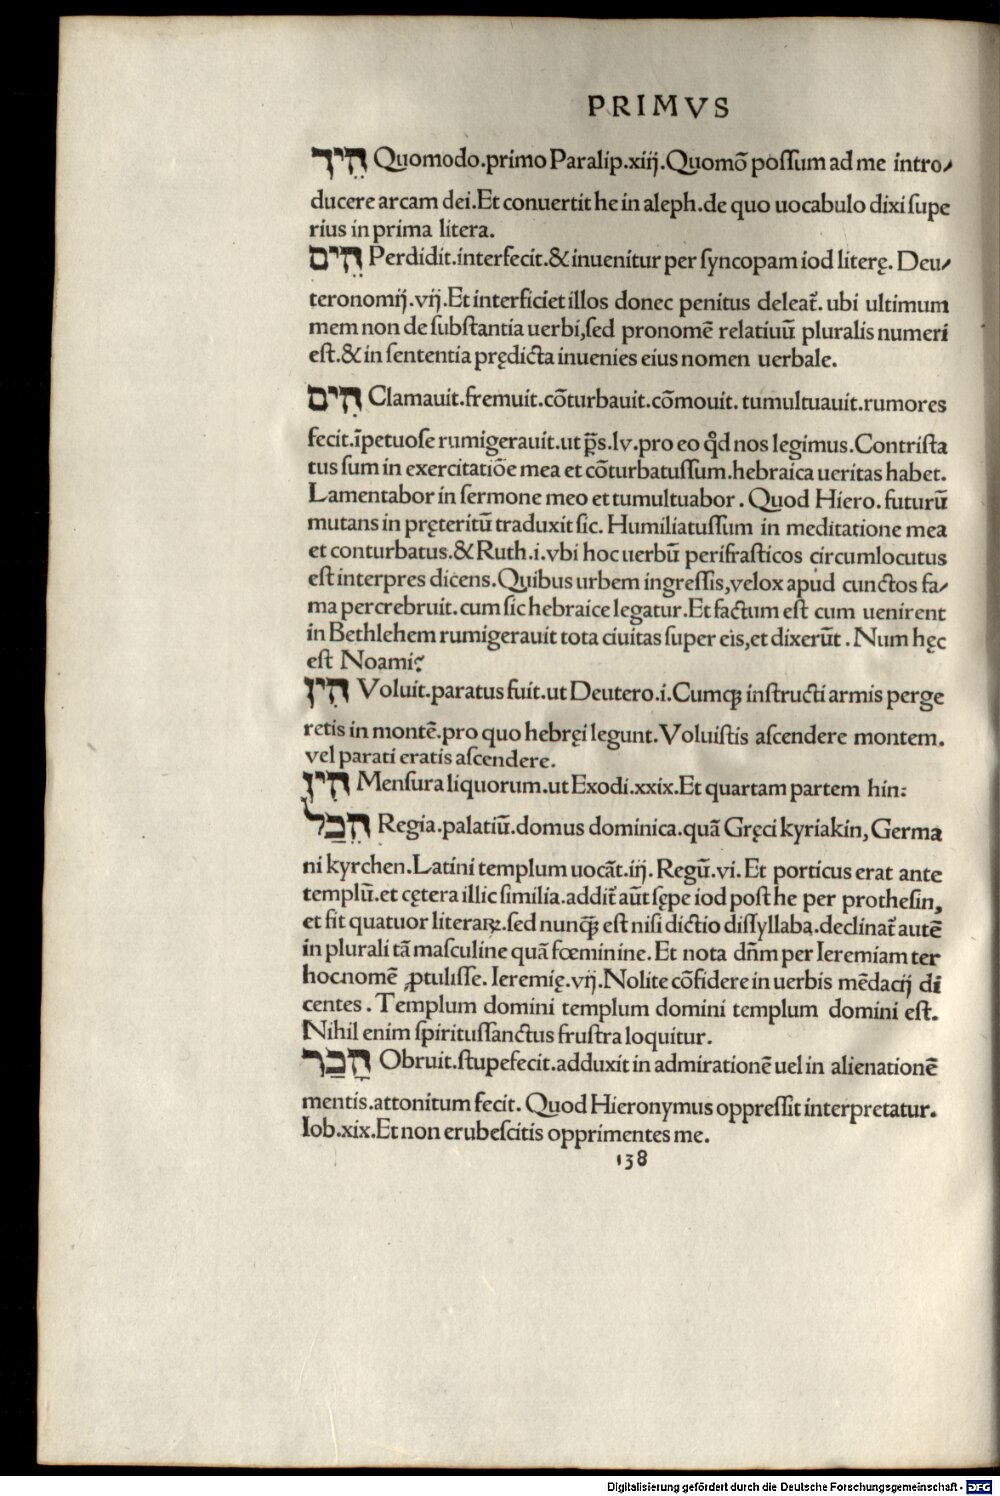 PRIMVS
הֵיךְ Quomodo.primo Paralip.xiij.Quomō possum ad me intro/
ducere arcam dei.Et conuertit he in aleph.de quo uocabulo dixi supe
rius in prima litera.
הֵים Perdidit.interfecit.&inuenitur per syncopam iod literę. Deu/
teronomij.vij.Et interficiet illos donec penitus deleat᷑. ubi ultimum
mem non de substantia uerbi,sed pronomē relatiuū pluralis numeri
est.&in sententia prędicta inuenies eius nomen uerbale.
הִים Clamauit.fremuit.cōturbauit.cōmouit. tumultuauit.rumores
fecit.īpetuose rumigerauit.ut p̄s.lv.pro eo qđ nos legimus.Contrista
tus sum in exercitatiōe mea et cōturbatussum.hebraica ueritas habet.
Lamentabor in sermone meo et tumultuabor . Quod Hiero. futurū
mutans in pręteritū traduxit sic. Humiliatussum in meditatione mea
et conturbatus.&Ruth.i.vbi hoc uerbū perifrasticos circumlocutus
est interpres dicens.Quibus urbem ingressis,velox apud cunctos fa/
ma percrebruit.cum sic hebraice legatur.Et factum est cum uenirent
in Bethlehem rumigerauit tota ciuitas super eis,et dixerūt . Num hęc
est Noami?
הִין Voluit.paratus fuit.ut Deutero.i.Cumqꝫ instructi armis perge
retis in montē.pro quo hebręi legunt.Voluistis ascendere montem.
vel parati eratis ascendere.
הִין Mensura liquorum.ut Exodi.xxix.Et quartam partem hin:
הֵכַל Regia.palatiū.domus dominica.quā Gręci kyriakin, Germa
ni kyrchen.Latini templum uocāt.iij. Regū.vi. Et porticus erat ante
templū.et cętera illic similia.addit᷑ aūt sępe iod post he per prothesin,
et fit quatuor literaꝝ.sed nunqꝫ̄ est nisi dictio dissyllaba.declinat᷑ autē
in plurali tā masculine quā fœminine. Et nota dn̄m per Ieremiam ter
hoc nomē ꝓtulisse. Ieremię.vij.Nolite cōfidere in uerbis mēdacij di
centes . Templum domini templum domini templum domini est.
Nihil enim spiritussanctus frustra loquitur.
הָכַר Obruit.stupefecit.adduxit in admirationē uel in alienationē
mentis.attonitum fecit. Quod Hieronymus oppressit interpretatur.
Iob.xix.Et non erubescitis opprimentes me.
138
Digitalisierung gefördert durch die Deutsche Forschungsgemeinschaft - DFG